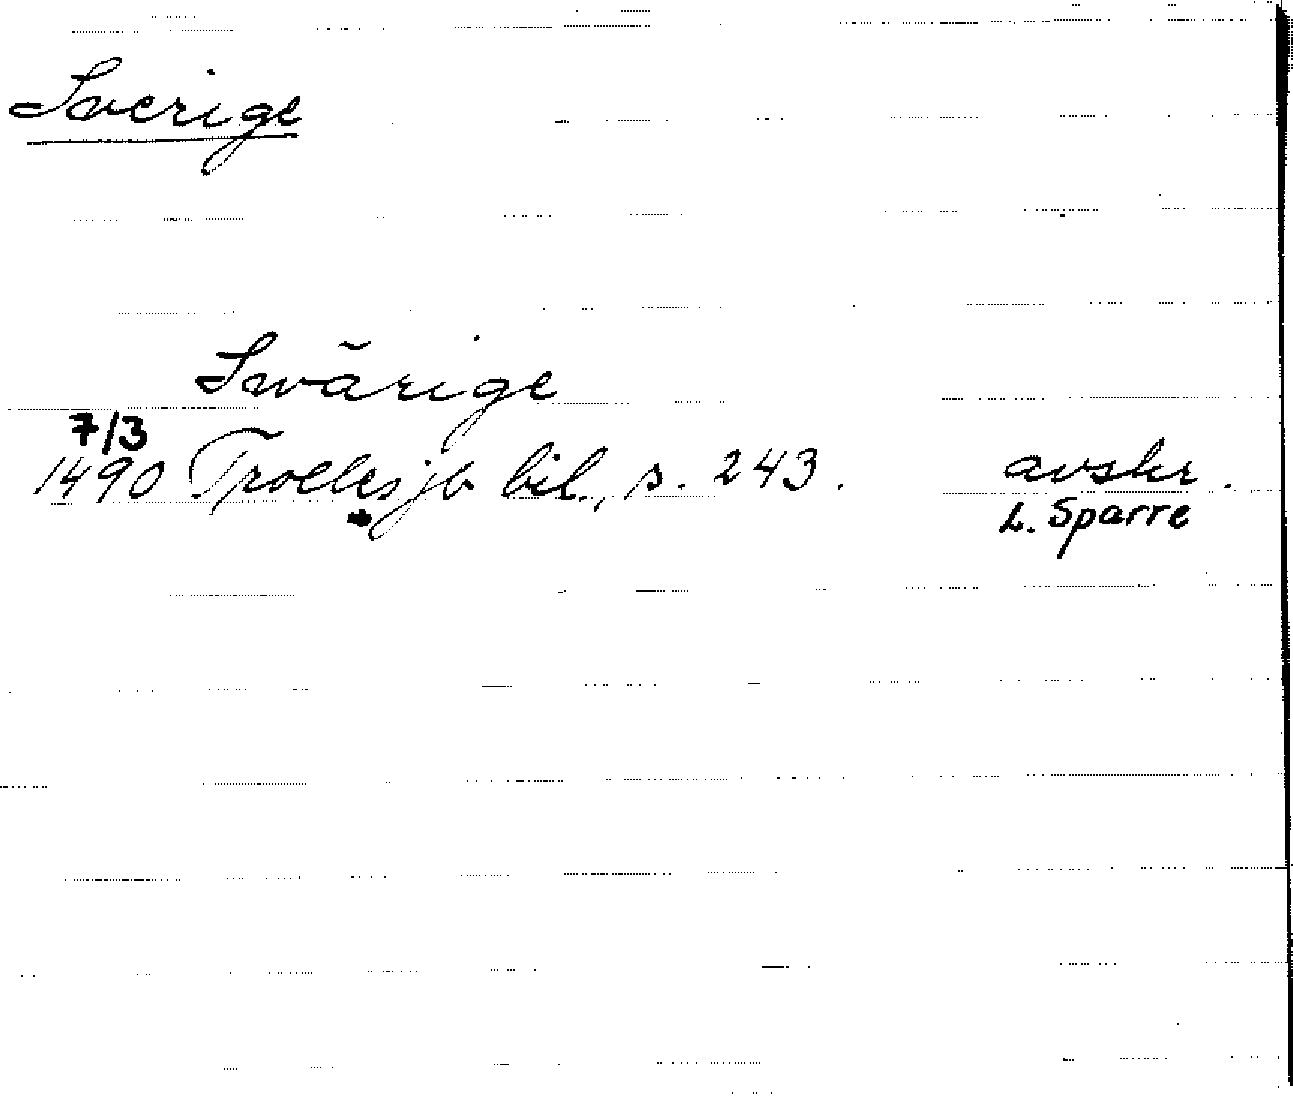 Sverige
Swärige
7/3
1490 Trolles jb bil., s. 243. avskr.
L. Sparre